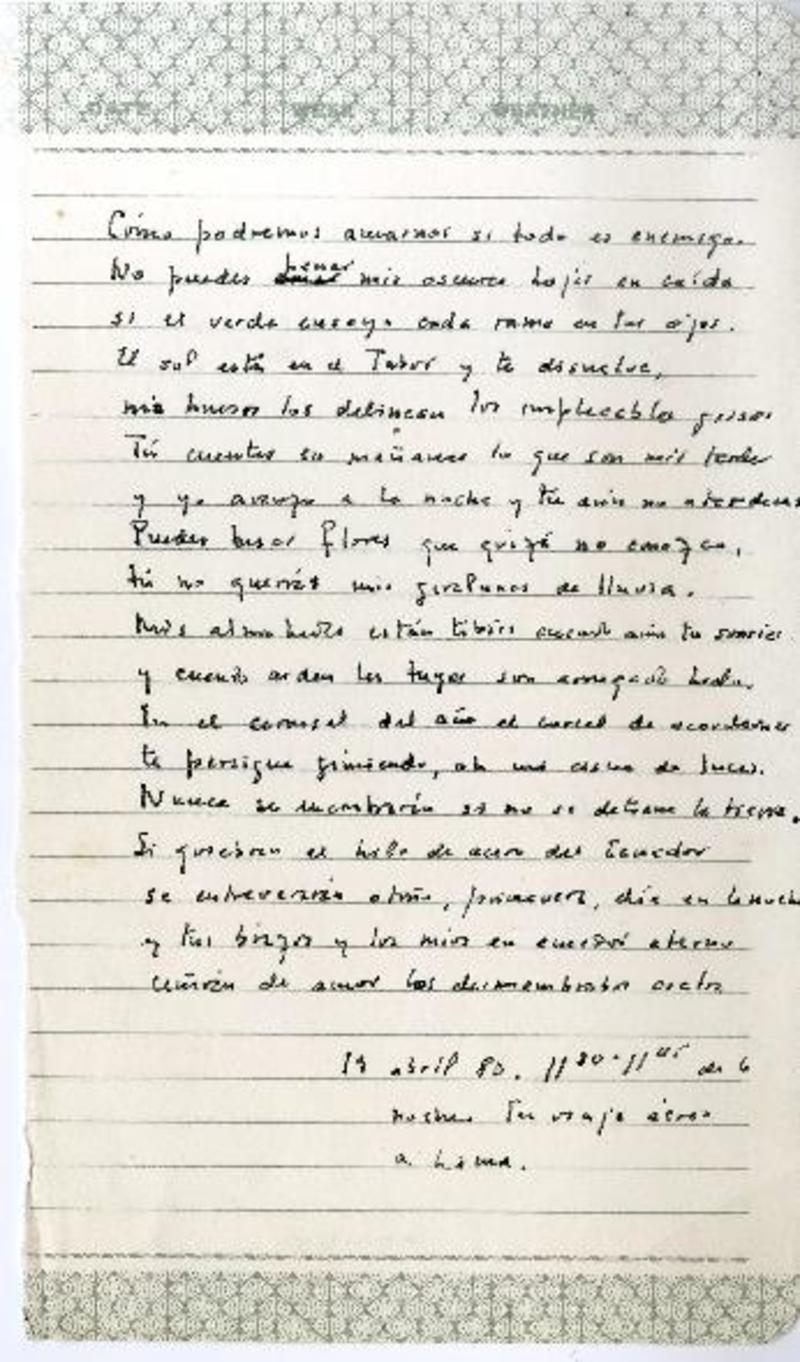 Cómo podremos amarnos si todo es enemigo.
No puedes besar mis oscuras hojas en caída
si el verde ensaya cada rama en tus ojos.
El sol está en el Tabor y te disuelve,
mis huesos los delinean los implacables grises
Tú cuentas en mañanas lo que son mis tardes
y yo avanzo a la noche y tú aún no atardeces
Puedes besar flores que quizá no conozca,
tú no querrás mis geranios de lluvia.
Mis almohadas están tibias cuando aún tu sonríes
y cuando arden las tuyas son arrugado hielo.
En el carrusel del año el corcel de acordarnos
te persigue gimiendo, oh mi cisne de luces.
Nunca se encontrarán si no se detiene la tierra.
Si quiebran el hilo de acero del Ecuador
se entreverarán otoño, primavera, día en la noche
y tus brazos y los míos en eterno
ceñirán de amor los desmembrados
19 abril 80. 11 30 - 11 45 de la
noche. En viaje aéreo
a Lima.